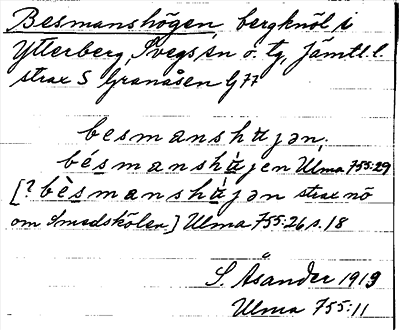 Besmanshögen, bergknöl i
Ytterberg, Svegs sn o. tg, Jämtl. l.
strax S Granåsen G77
besmanshɷjən,
bésmanshɷ̀jen Ulma 755:29
[? bèsmanshɷ́jən strax nö
om Smedskölen.] Ulma 755:26 s. 18
S. Åsander 1919
Ulma 755:11